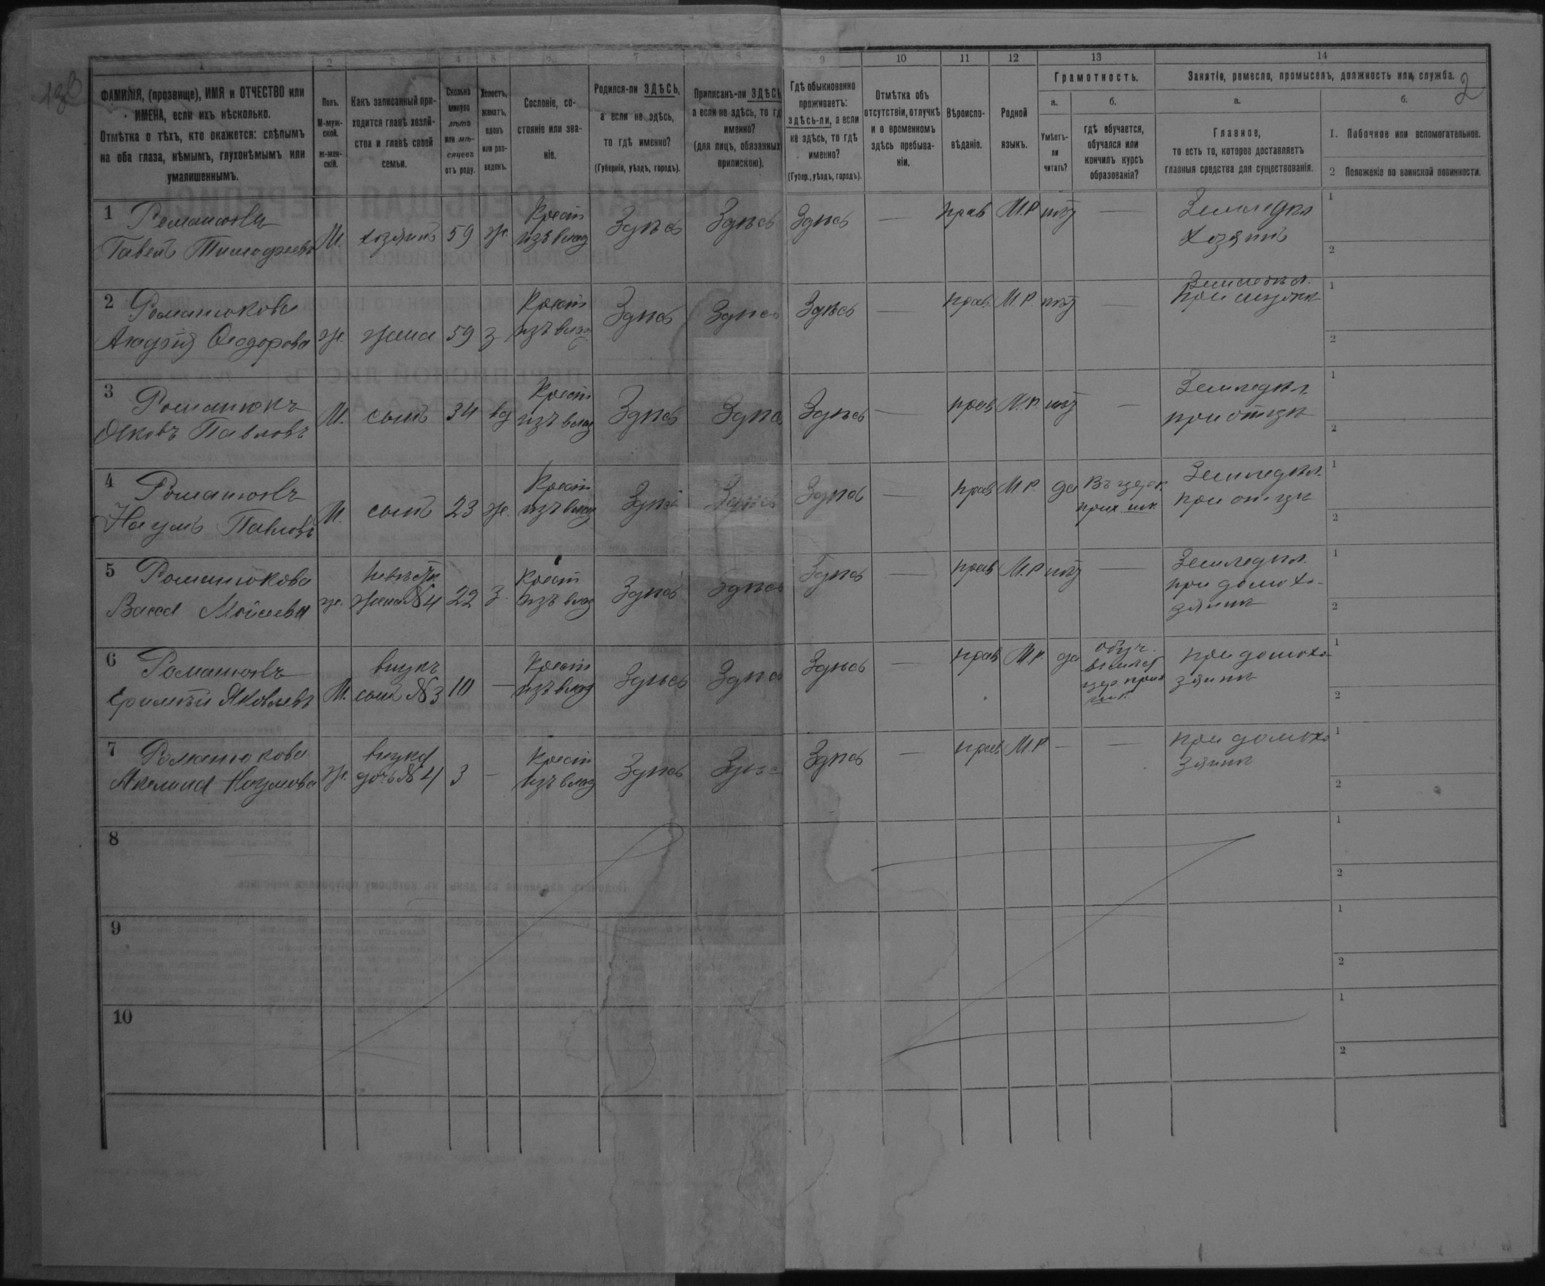 1 2 3 4 5 6 7 8 9 10 11 12 13 14
2
ФАМИЛІЯ, (прозвище), ИМЯ и ОТЧЕСТВО или
ИМЕНА, если ихъ нѣсколько.
Отмѣтка о тѣхъ, кто окажется: слѣпымъ
на оба глаза, нѣмымъ, глухонѣмымъ или
умалишеннымъ.
Полъ.
М-муж-
ской.
ж-жен-
скій.
Какъ записанный при-
ходится главѣ хозяй-
ства и главѣ своей
семьи.
Сколько
минуло
лѣтъ
или мѣ-
сяцевъ
отъ роду.
Холостъ,
женатъ,
вдовъ
или раз-
веденъ.
Сословіе, со-
стояніе или зва-
ніе.
Родился-ли ЗДѢСЬ,
а если не здѣсь,
то гдѣ именно?
(Губернія, уѣздъ, городъ).
Приписанъ-ли ЗДѢСЬ
а если не здѣсь, то гдѣ
именно?
(для лицъ, обязанныхъ
припискою).
Гдѣ обыкновенно
проживаетъ:
здѣсь-ли, а если
не здѣсь, то гдѣ
именно?
(Губер., уѣздъ, городъ).
Отмѣтка объ
отсутствіи, отлучкѣ
и о временномъ
здѣсь пребыва-
ніи.
Вѣроиспо-
вѣданіе.
Родной
языкъ.
Грамотность.
а.
Умѣетъ-
ли
читать?
б.
гдѣ обучается,
обучался или
кончилъ курсъ
образованія?
Занятіе, ремесло, промыселъ, должность или служба.
а.
Главное,
то есть то, которое доставляетъ
главныя средства для существованія.
б.
1. Побочное или вспомогательное.
2 Положеніе по воинской повинности.
1 Романюкъ
Павелъ Тимофеевъ М. хозяинъ 59 ж. Крест изъ влад Здѣсь Здѣсь Здѣсь — прав М.Р нѣт — Земледѣл
хозяинъ
1
2
2 Романюкова
Федорова ж. жена 59 з Крест изъ влад Здѣсь Здѣсь Здѣсь — прав М.Р нѣт — Земледѣл.
при мужѣ
1
2
3 Романюкъ
Яковъ Павловъ М. сынъ 34 вд Крест изъ влад Здѣсь Здѣсь Здѣсь — прав М.Р нѣт — Земледѣл
при отцѣ
1
2
4 Романюкъ
Наумъ Павловъ М. сынъ 23 ж. Крест изъ влад Здѣсь Здѣсь Здѣсь — прав М.Р да Въ церк
прих шк Земледѣл.
при отцѣ
1
2
5 Романюкова
Васса ж. невѣстк
жена №4 22 з Крест изъ влад Здѣсь Здѣсь Здѣсь — прав М.Р нѣт — Земледѣл.
при домохо-
зяинѣ
1
2
6 Романюкъ
Яковлевъ М. внукъ
сын №3 10 — Крест изъ влад Здѣсь Здѣсь Здѣсь — прав М.Р да обуч.
при домохо
зяинѣ
1
2
7 Романюкова
Наумова ж. внука
дочь №4 3 — Крест изъ влад Здѣсь Здѣсь Здѣсь — прав М.Р — — при домохо
зяинѣ
1
2
8
1
2
9
1
2
10
1
2